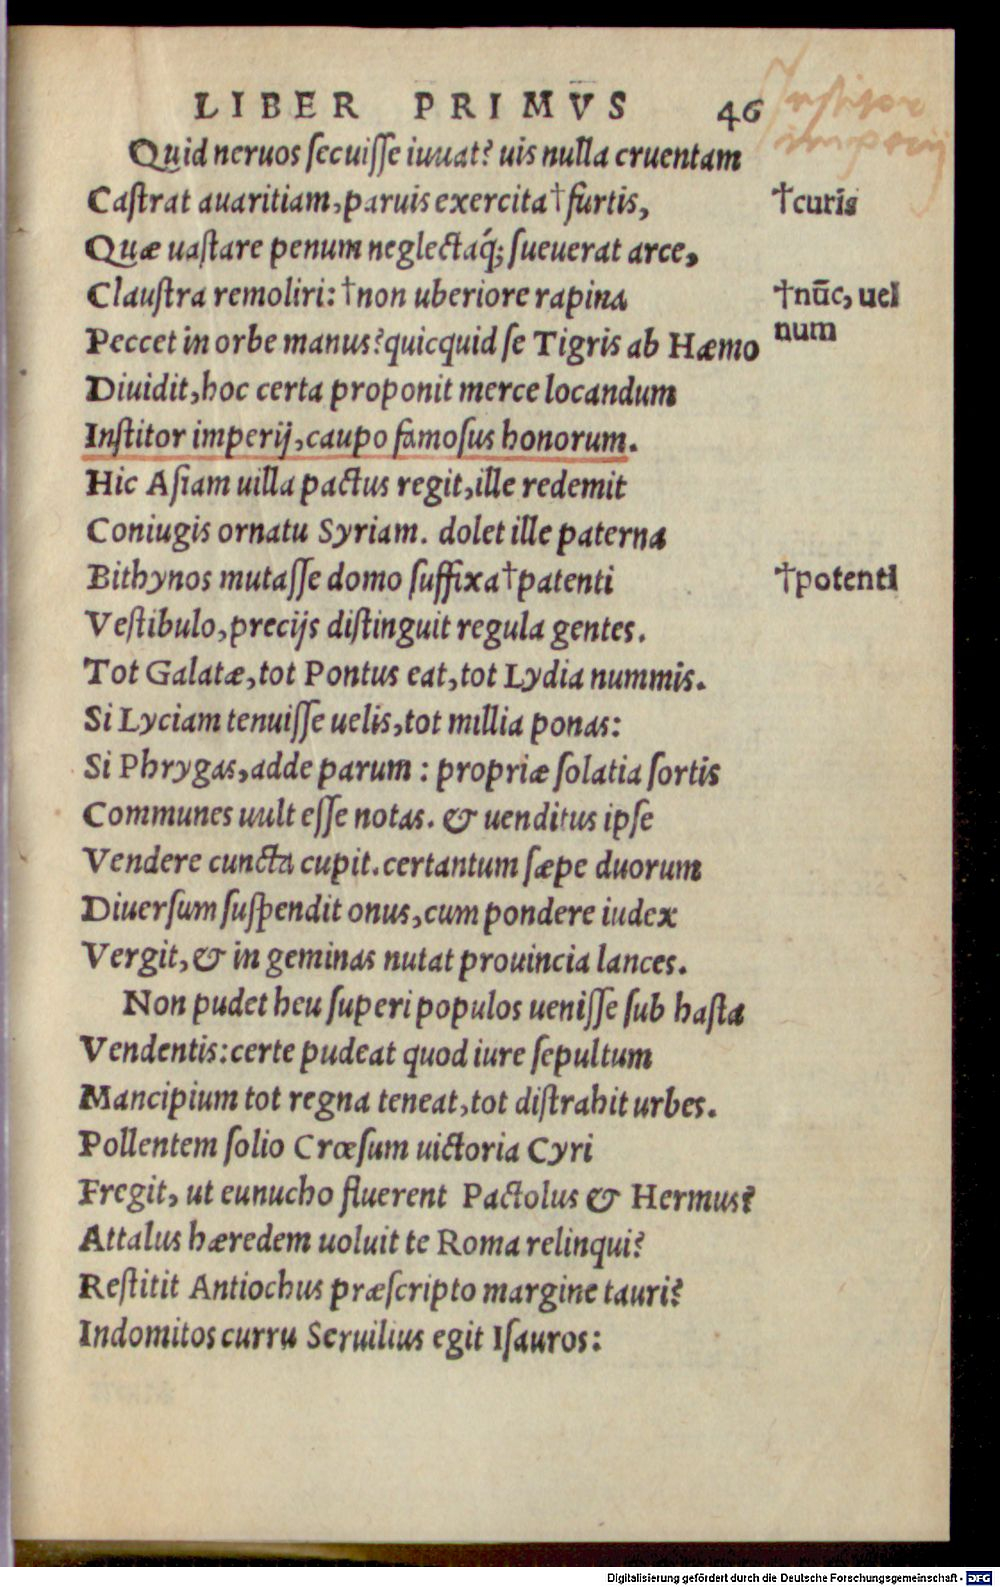 LIBER PRIMVS 46
Institor
imperij
Quid neruos ſecuiſſe iuuat? uis nulla cruentam
Caſtrat auaritiam, paruis exercita † furtis,
†curis
Quæ uaſtare penum neglectaq́; ſueuerat arce,
Clauſtra remoliri: † non uberiore rapina
†nūc, uel
num
Peccet in orbe manus? quicquid ſe Tigris ab Hæmo
Diuidit, hoc certa proponit merce locandum
Inſtitor imperij, caupo famoſus honorum.
Hic Aſiam uilla pactus regit, ille redemit
Coniugis ornatu Syriam. dolet ille paterna
Bithynos mutaſſe domo ſuffixa † patenti
†potenti
Veſtibulo, precijs diſtinguit regula gentes.
Tot Galatæ, tot Pontus eat, tot Lydia nummis.
Si Lyciam tenuiſſe uelis, tot millia ponas:
Si Phrygas, adde parum: propriæ ſolatia ſortis
Communes uult eſſe notas. & uenditus ipſe
Vendere cuncta cupit. certantum ſæpe duorum
Diuerſum ſuſpendit onus, cum pondere iudex
Vergit, & in geminas nutat prouincia lances.
Non pudet heu ſuperi populos ueniſſe ſub haſta
Vendentis: certe pudeat quod iure ſepultum
Mancipium tot regna teneat, tot diſtrahit urbes.
Pollentem ſolio Crœſum uictoria Cyri
Fregit, ut eunucho fluerent Pactolus & Hermus?
Attalus hæredem uoluit te Roma relinqui?
Reſtitit Antiochus præſcripto margine tauri?
Indomitos curru Seruilius egit Iſauros:
Digitalisierung gefördert durch die Deutsche Forschungsgemeinschaft - DFG